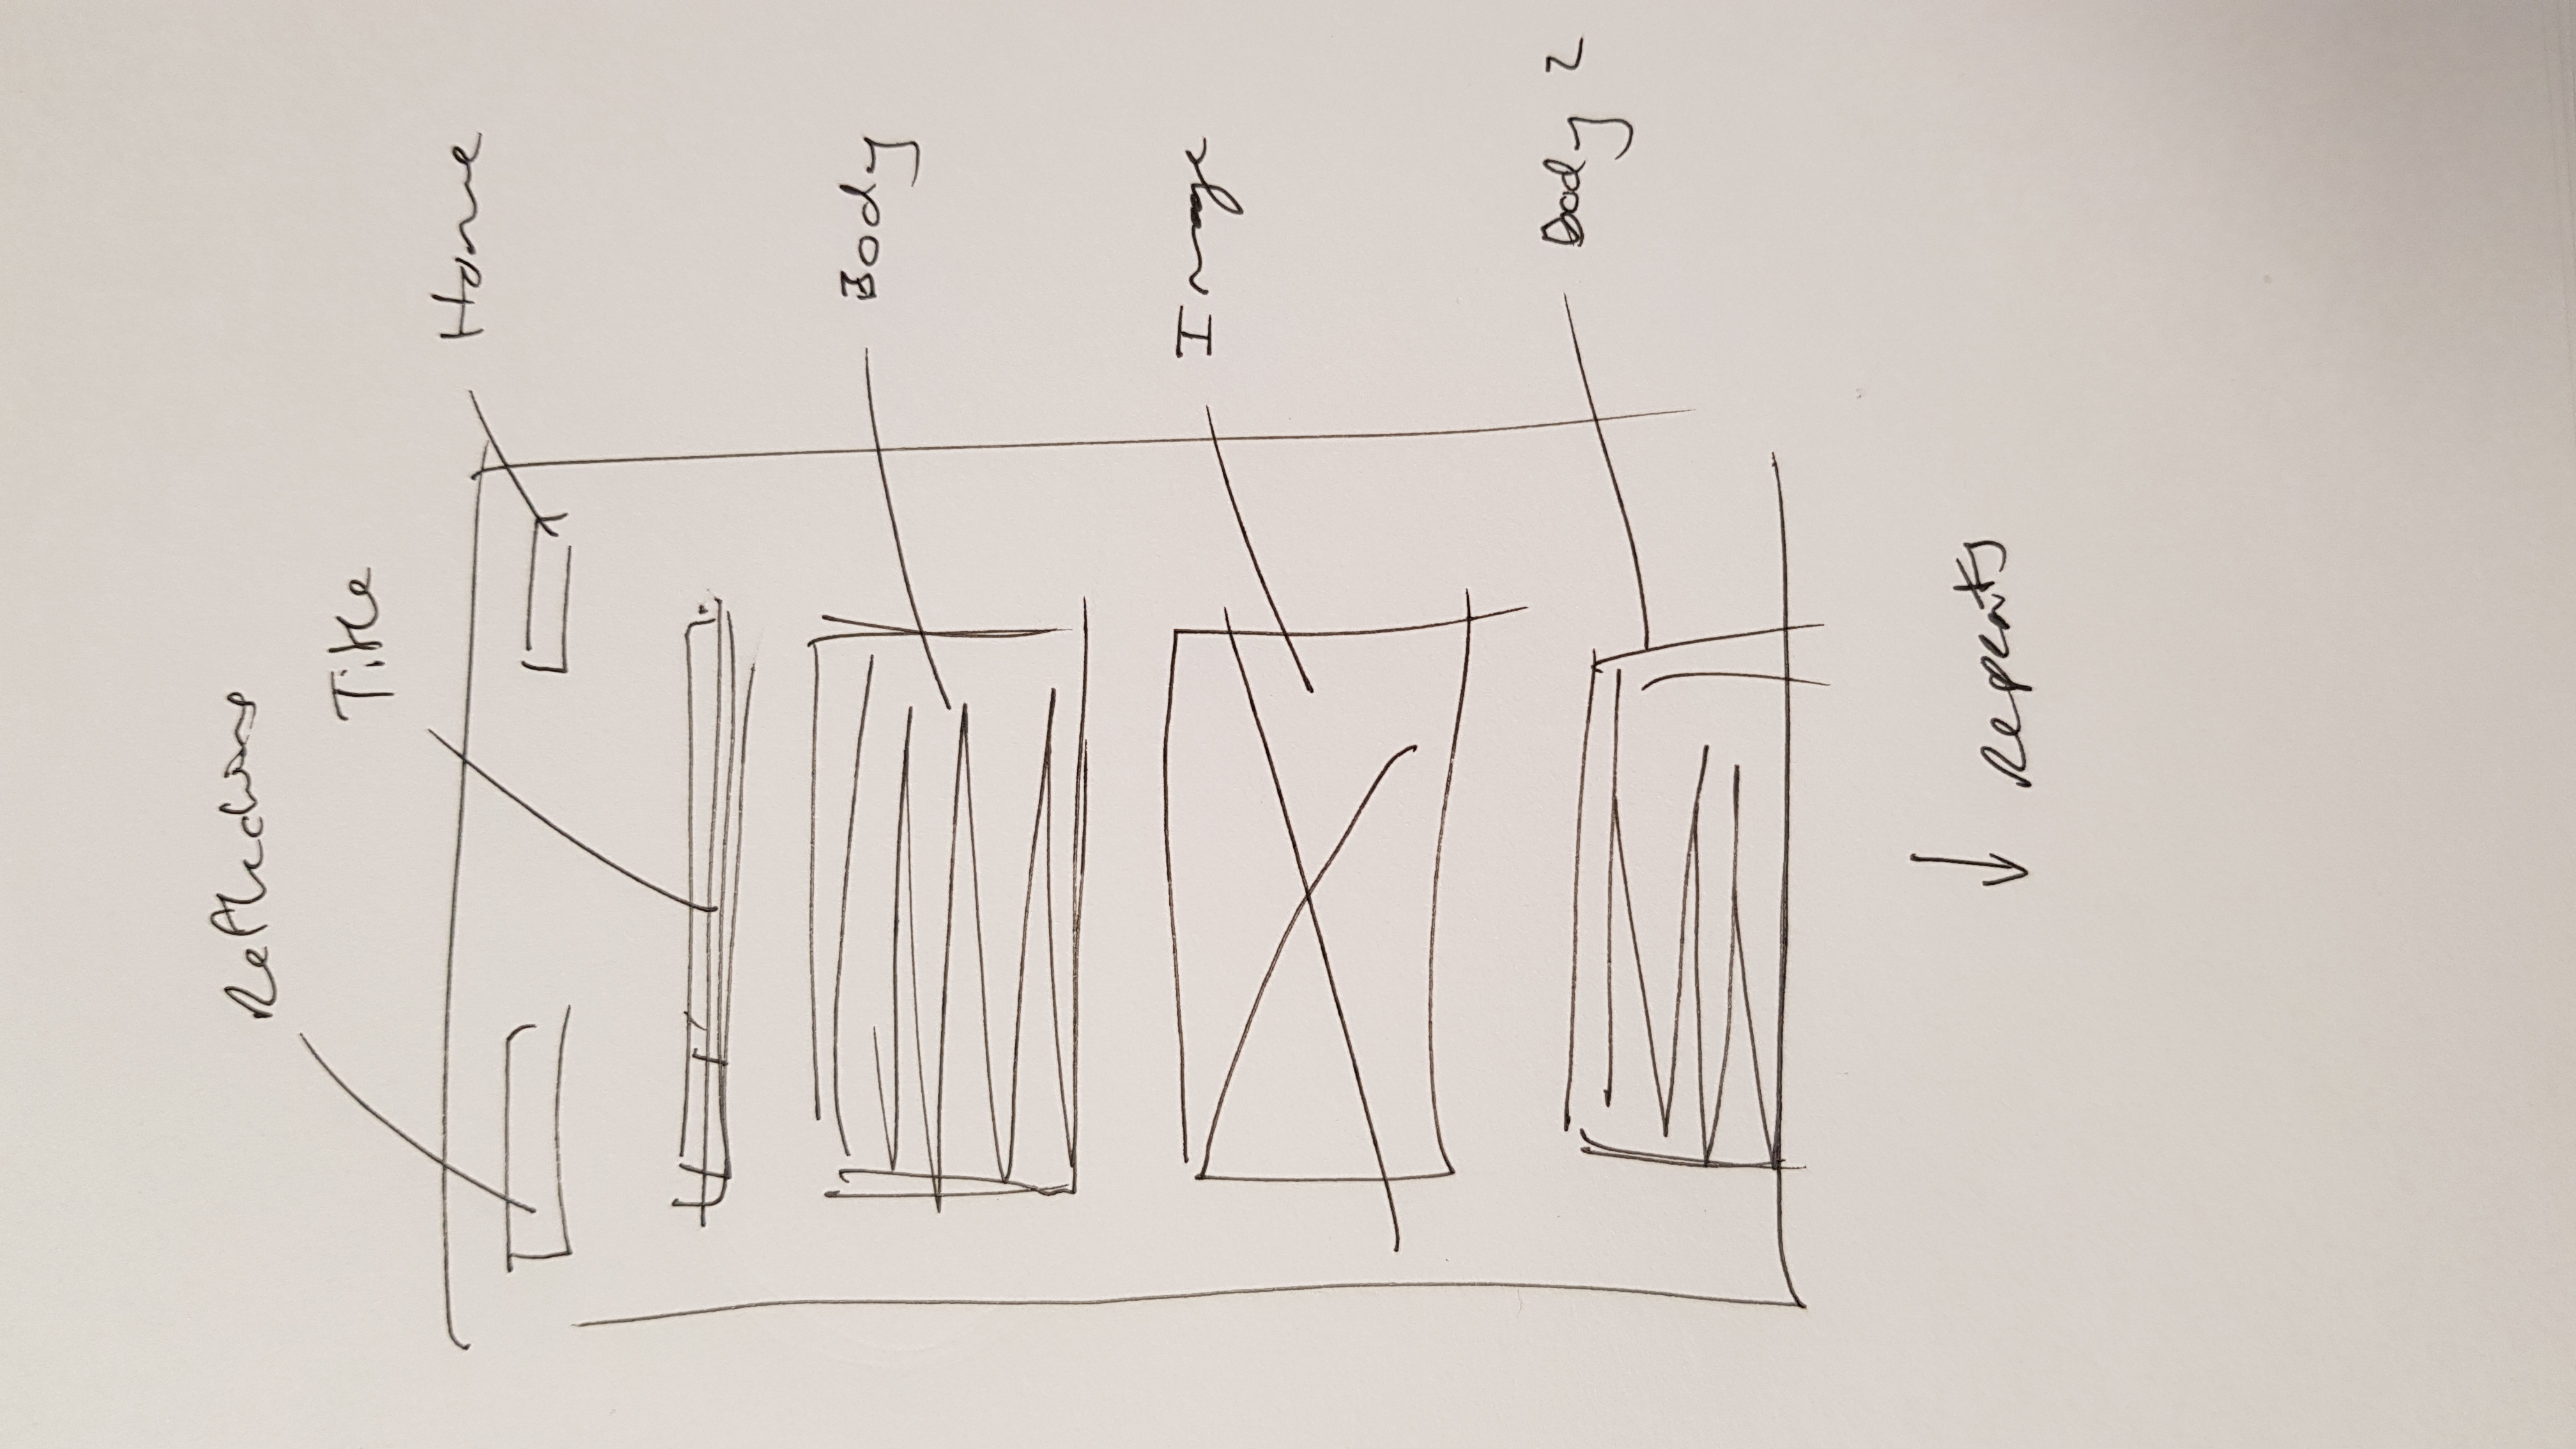 Reflections
Title
Home
Body
Image
Body 2
↓ Repeats